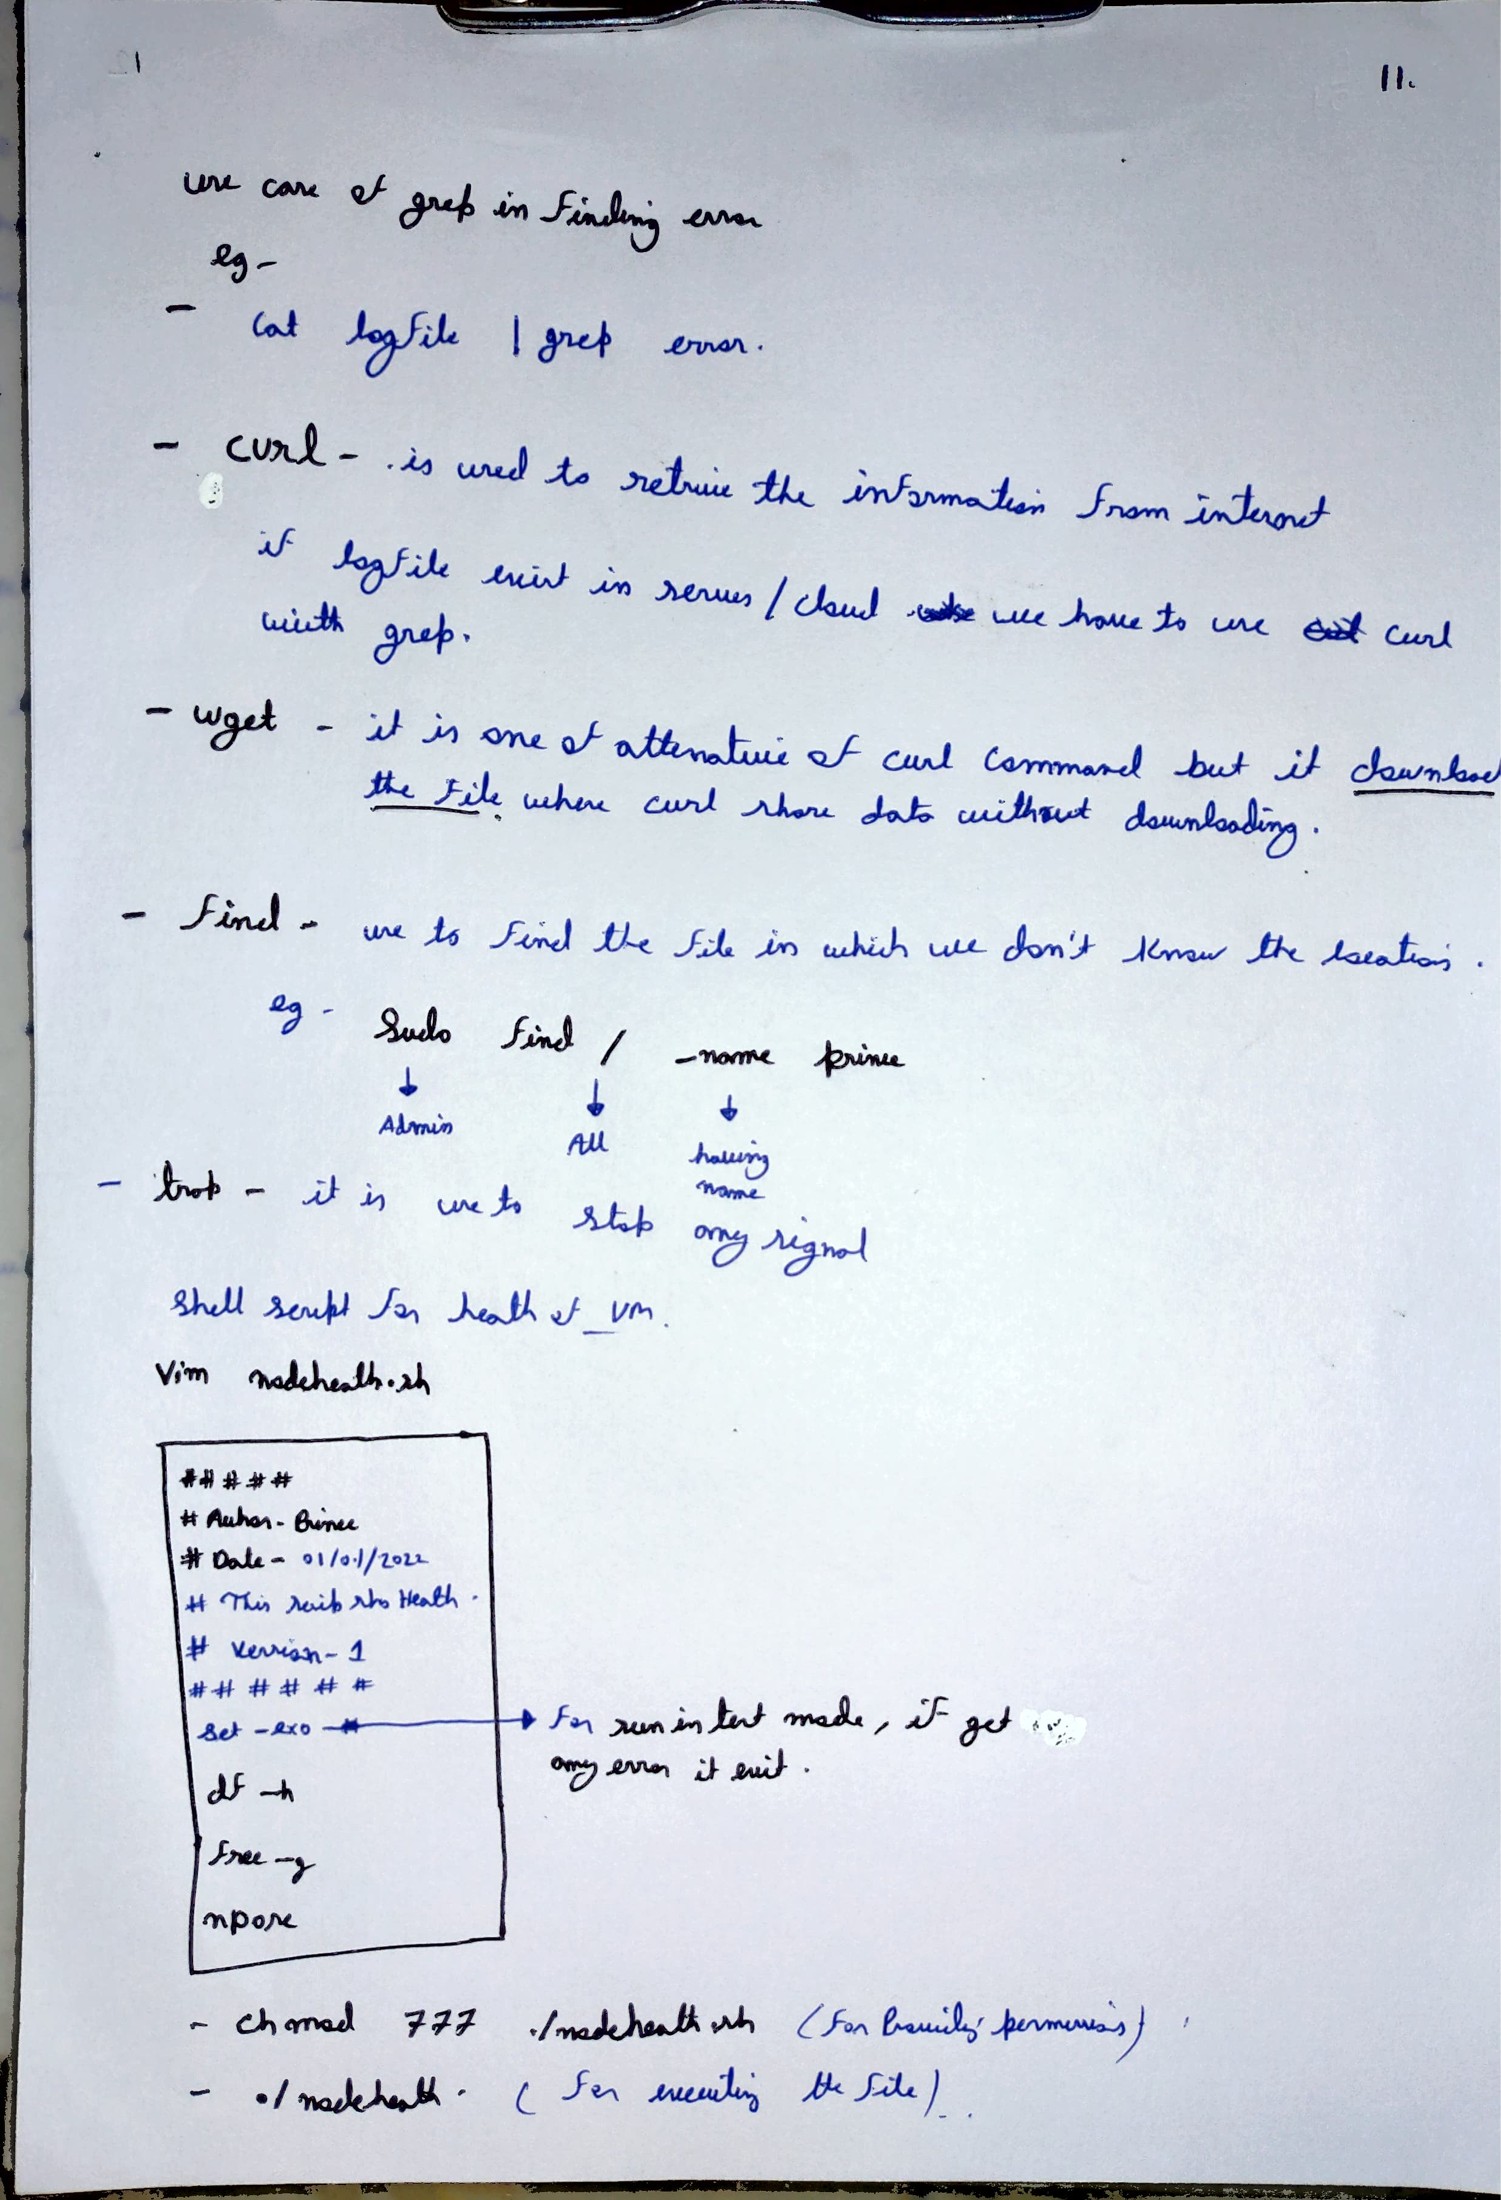 11.
use case of grep in finding error
eg -
- Cat logfile | grep error.
- curl - . is used to retrive the information from internet
if logfile exist in server / cloud we have to use curl
with grep.
- wget - it is one of attenative of curl command but it download
the file. where curl share data without downloading.
- find - use to find the file in which we don't know the location.
eg - Sudo find / -name prince
Admin All having
name
- trap - it is use to stop any signal
Shell script for heath of VM.
Vim nodeheath.sh
# # # # #
# Auhor - Prince
# Date - 01/01/2022
# This Heath.
# Version - 1
# # # # # #
set -exo → for run in test mode, if get
any error it exit.
df -h
free -g
npore
- chmod 777 ./nodeheath.sh (for permission)
- ./nodeheath. (for executing the file)